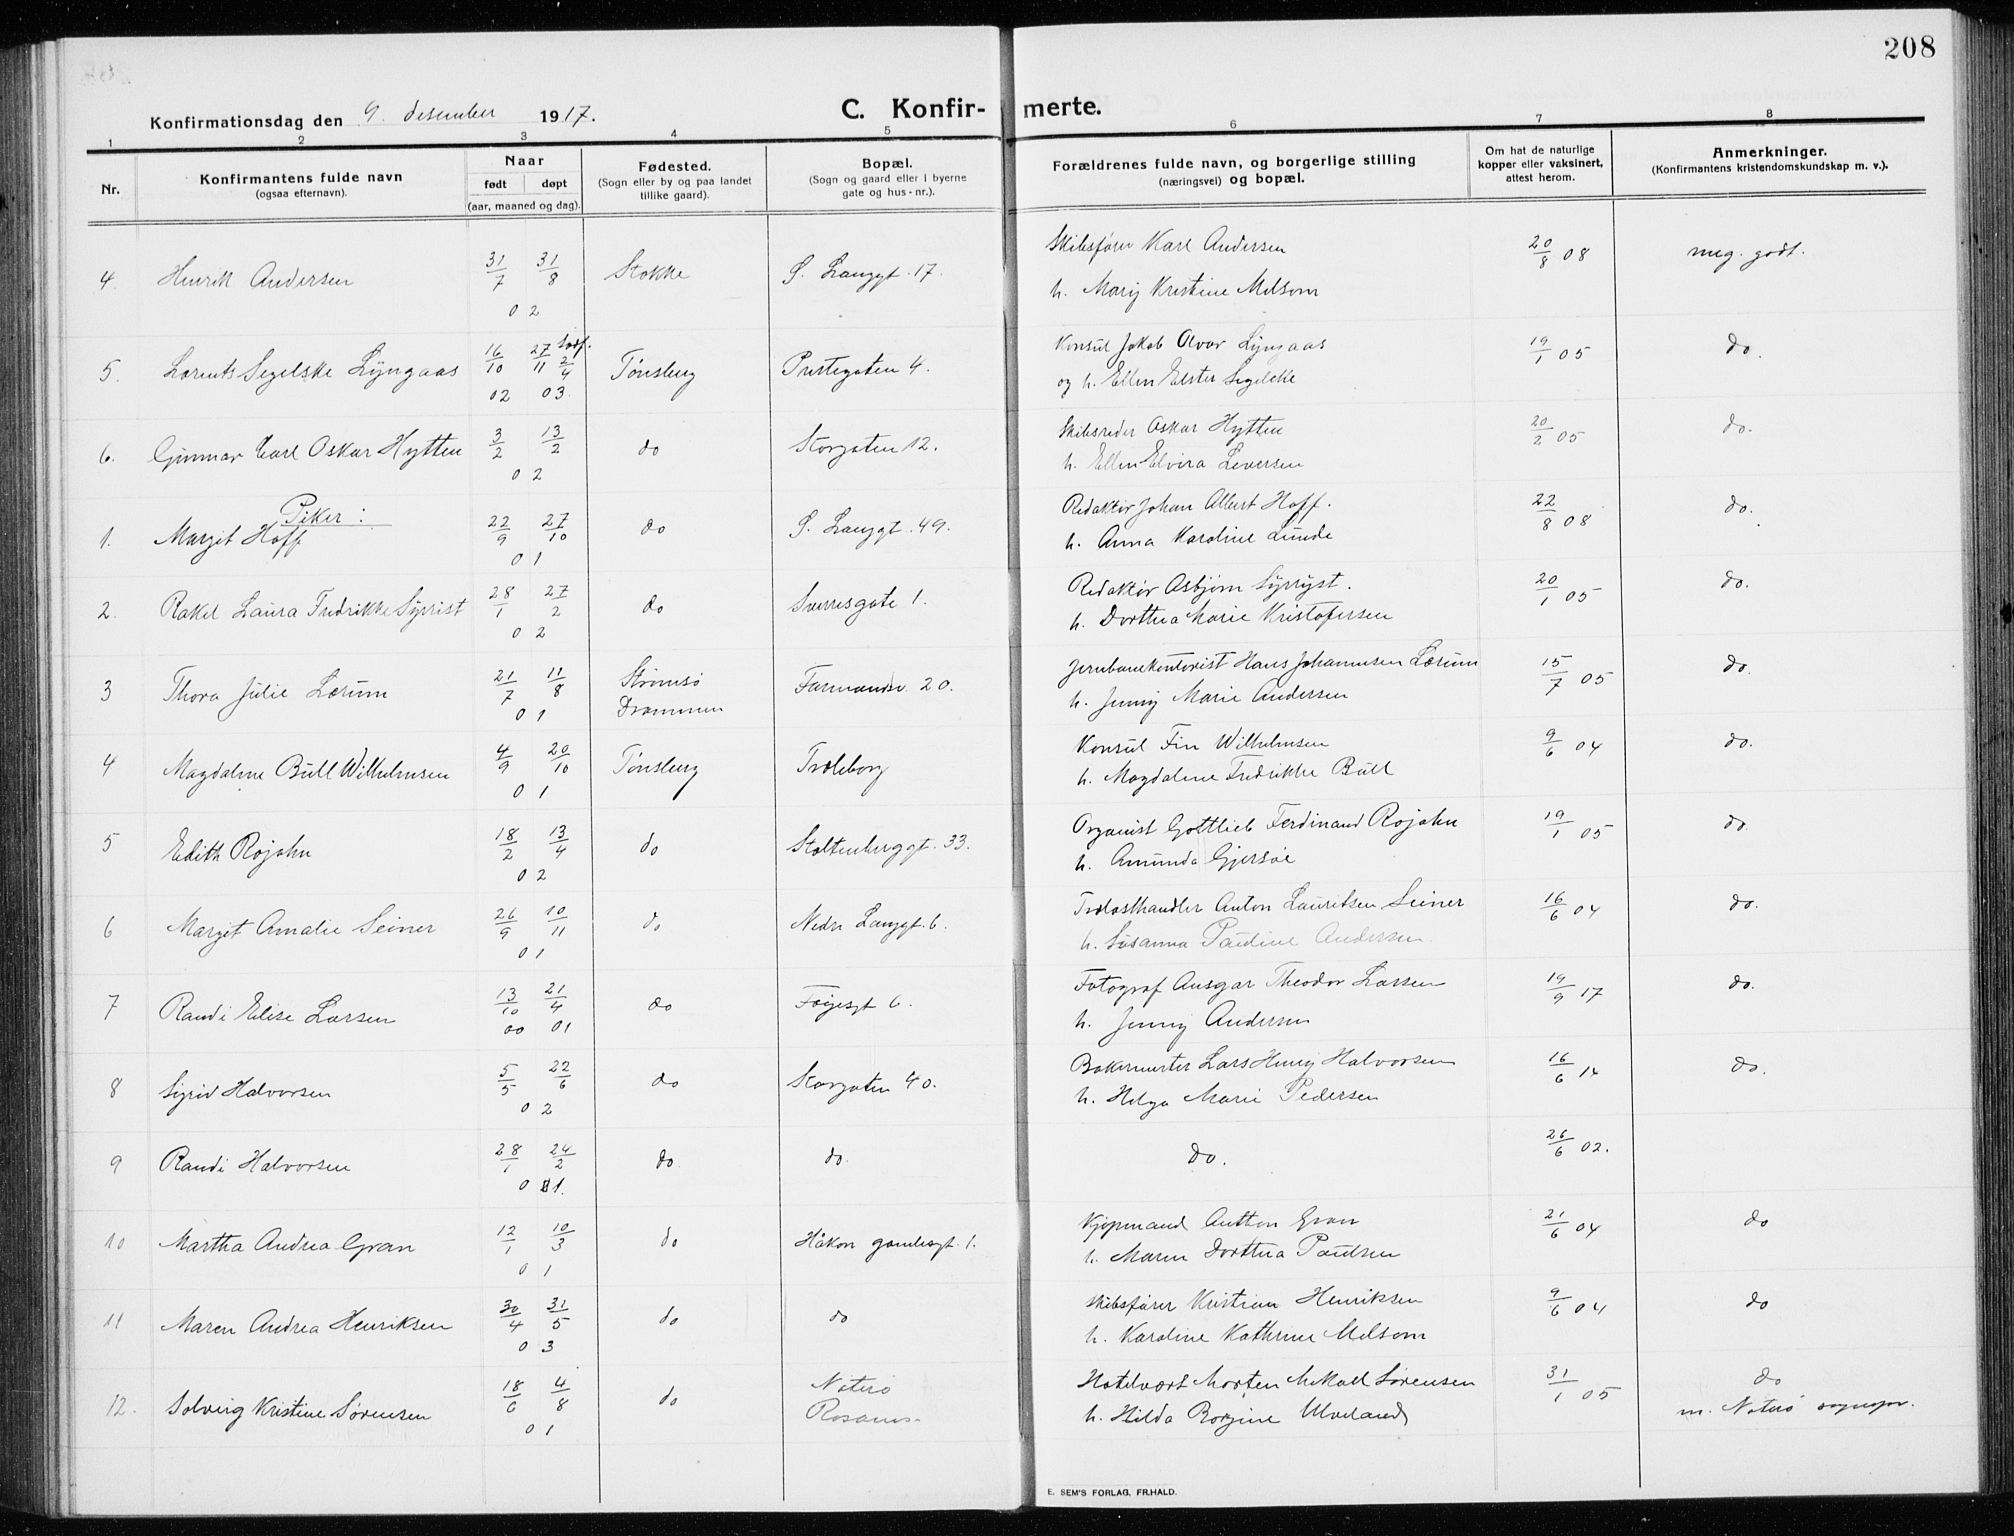 208
Konfirmationsdag den 9. desember 1917. C. Konfir- merte.
1 2 3 4 5 6 7 8
Nr. Konfirmantens fulde navn (ogsaa efternavn). Naar født døpt (aar, maaned og dag). Fødested. (Sogn eller by og paa landet tillike gaard). Bopæl. (Sogn og gaard eller i byerne gate og hus-nr.). Forældrenes fulde navn, og borgerlige stilling (næringsvei) og bopæl. Om hat de naturlige kopper eller vaksinert, attest herom. Anmerkninger. (Konfirmantens kristendomskundskap m. v.).
4. Henrik Andersen 31/7 31/8 02 Stokke S. Langgt. 17. Skibsfører Karl Andersen 20/8 08 meg. godt.
h. Marij Kristine Melsom
5. Lorents Segelske Lÿngaas 16/10 02 27/11 2/4 03 Tønsberg Prestegaten 4. Konsul Jakob Alvar Lyngaas 19/1 05 do.
og h. Ellen Elster Segelcke
6. Gunnar Carl Oskar Hytten 3/2 13/2 02 do Storgaten 12. Skibsreder Oskar Hytten 20/2 05 do.
h. Ellen Elvira Leversen
Piker:
1. Margit Hoff 22/9 27/10 01 do S. Langgt. 49. Redaktør Johan Albert Hoff. 22/8 08 do.
h. Anna Karoline Lunde
2. Rakel Laura Fredrikke Sÿrrist 28/1 27/2 02 do Sverresgate 1. Redaktør Asbjørn Sÿrryst. 20/1 05 do.
h. Dorthea Marie Kristofersen
3 Thora Julie Lærum 21/7 11/8 01 Strømsø Drammen Farmandsv. 20. Jernbanekontorist Hans Johannesen Lærum 15/7 05 do.
h. Jenny Marie Andersen
4 Magdalene Bull Wilhelmsen 4/9 20/10 01 Tønsberg Træleborg Konsul Fin Wilhelmsen 9/6 04 do.
h. Magdalene Fredrikke Bull
5 Edith Rojahn 18/2 13/4 02 do Stoltenberggt. 33. Organist Gottlieb Ferdinand Rojahn 19/1 05 do.
h. Amunda Gjersøe
6 Margit Amalie Seiner 26/9 10/11 01 do Nedre Langgt. 6. Trælasthandler Anton Lauritsen Seiner 16/6 04 do.
h. Susanna Pauline Andersen.
7 Randi Elise Larsen 13/10 00 21/4 01 do Føyesgt 6. Fotograf Ansgar Theodor Larsen 19/9 17 do.
h. Jenny Andersen
8 Sigrid Halvorsen 5/5 22/6 02 do Storgaten 40. Bakermester Lars Henry Halvorsen 16/6 14 do.
h. Helga Marie Pedersen
9 Randi Halvorsen 28/1 24/2 01. do. do. do. 26/6 02.
10 Martha Andrea Gran 12/1 10/3 01 do Håkon gamlesgt. 1. Kjøpmand Anthon Gran 21/6 04 do
h. Maren Dorthea Paulsen
11 Maren Andrea Henriksen 30/4 31/5 03 do do Skibsfører Kristian Henriksen 9/6 04 do
h. Karoline Kathrine Melsom
12. Solveig Kristine Sørensen 18/6 4/8 01 do Nøterø Hotelvært Morten Mikael Sørensen 31/1 05 do
h. Hilda Borgine Ulveland m. Nøterø sognepr.
E. SEM'S FORLAG, FR.HALD.